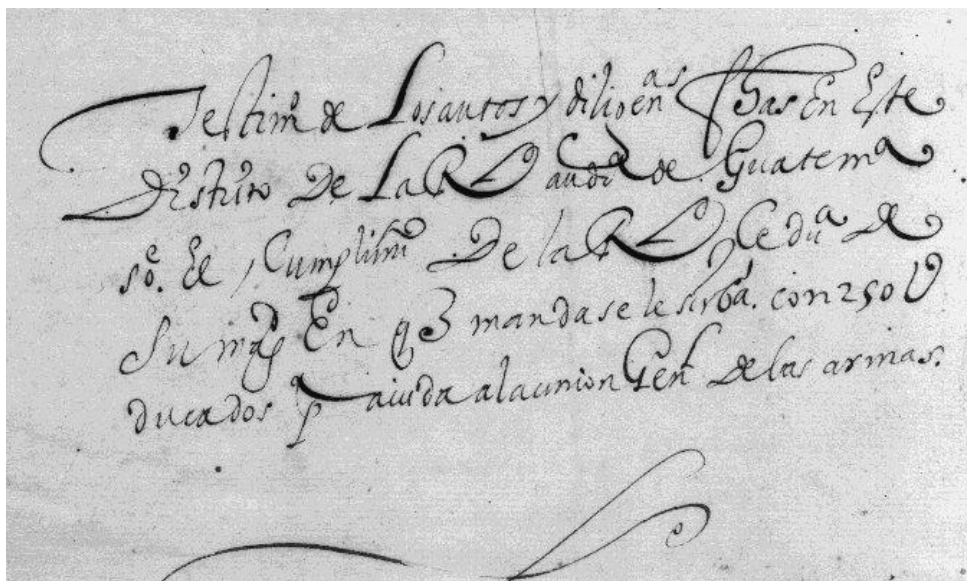 Testimº de Los autos y diligenas fhas En Este
Distrito De La Rl audia de Guatema
sre. El Cumplimio De la Rl Cedua de
Su magd En q manda se le sirba. con 250 U
ducados pa aiuda a la union Genl De las armas.